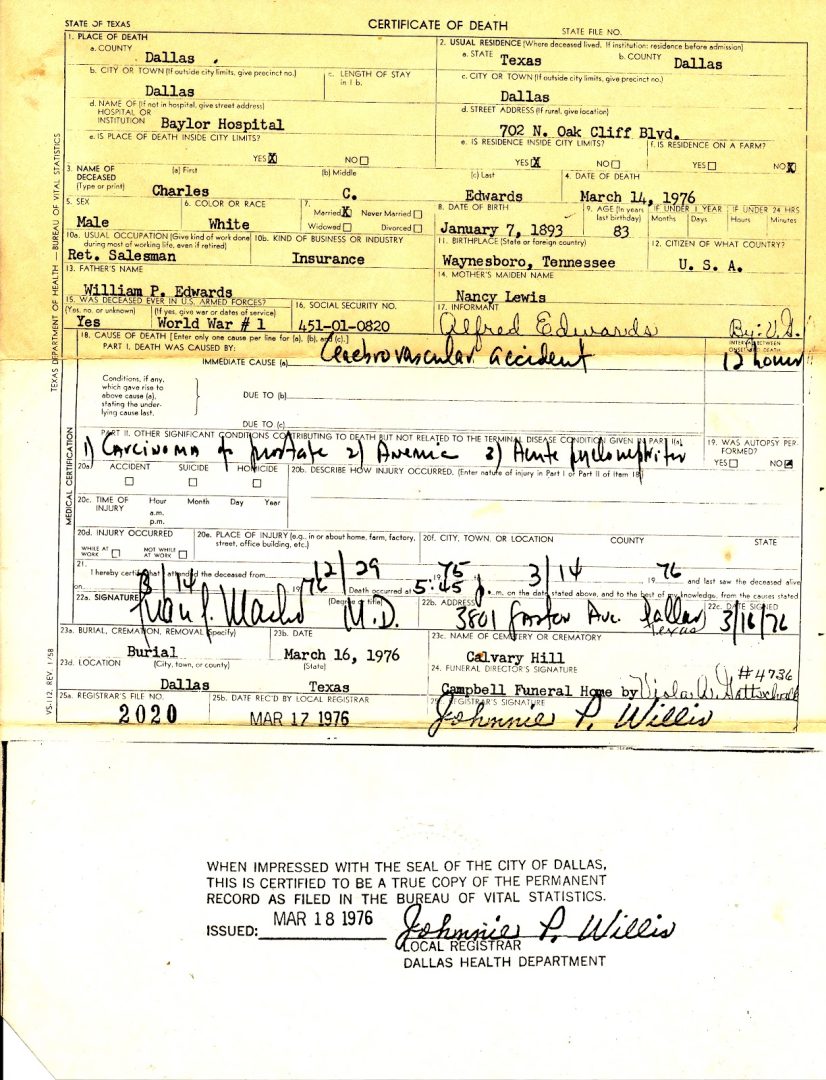 STATE OF TEXAS
CERTIFICATE OF DEATH
STATE FILE NO.
1. PLACE OF DEATH
a. COUNTY
Dallas
b. CITY OR TOWN (If outside city limits, give precinct no.)
c. LENGTH OF STAY in 1 b.
Dallas
d. NAME OF (If not in hospital, give street address) HOSPITAL OR INSTITUTION
Baylor Hospital
e. IS PLACE OF DEATH INSIDE CITY LIMITS?
YES X NO
2. USUAL RESIDENCE (Where deceased lived. If institution: residence before admission)
a. STATE Texas b. COUNTY Dallas
c. CITY OR TOWN (If outside city limits, give precinct no.)
Dallas
d. STREET ADDRESS (If rural, give location)
702 N. Oak Cliff Blvd.
e. IS RESIDENCE INSIDE CITY LIMITS?
YES X NO
f. IS RESIDENCE ON A FARM?
YES NO X
3. NAME OF DECEASED (Type or print)
(a) First (b) Middle (c) Last
Charles C. Edwards
4. DATE OF DEATH
March 14, 1976
5. SEX
Male
6. COLOR OR RACE
White
7.
Married X Never Married
Widowed Divorced
8. DATE OF BIRTH
January 7, 1893
9. AGE (In years last birthday)
83
IF UNDER 1 YEAR
Months Days
IF UNDER 24 HRS
Hours Minutes
10a. USUAL OCCUPATION (Give kind of work done during most of working life, even if retired)
Ret. Salesman
10b. KIND OF BUSINESS OR INDUSTRY
Insurance
11. BIRTHPLACE (State or foreign country)
Waynesboro, Tennessee
12. CITIZEN OF WHAT COUNTRY?
U. S. A.
13. FATHER'S NAME
William P. Edwards
14. MOTHER'S MAIDEN NAME
Nancy Lewis
15. WAS DECEASED EVER IN U.S. ARMED FORCES?
(Yes, no, or unknown) (If yes, give war or dates of service)
Yes World War # 1
16. SOCIAL SECURITY NO.
451-01-0820
17. INFORMANT
Alfred Edwards
18. CAUSE OF DEATH [Enter only one cause per line for (a), (b), and (c).]
PART I. DEATH WAS CAUSED BY:
INTERVAL BETWEEN ONSET AND DEATH
IMMEDIATE CAUSE (a) Cerebrovascular accident 12 hours
Conditions, if any, which gave rise to above cause (a), stating the underlying cause last.
DUE TO (b)
DUE TO (c)
PART II. OTHER SIGNIFICANT CONDITIONS CONTRIBUTING TO DEATH BUT NOT RELATED TO THE TERMINAL DISEASE CONDITION GIVEN IN PART I(a)
1) Carcinoma of prostate 2) Anemia 3) Acute pyelonephritis
19. WAS AUTOPSY PERFORMED?
YES NO
20a. ACCIDENT SUICIDE HOMICIDE
20b. DESCRIBE HOW INJURY OCCURRED. (Enter nature of injury in Part I or Part II of Item 18)
20c. TIME OF INJURY
Hour Month Day Year
a.m.
p.m.
20d. INJURY OCCURRED
WHILE AT WORK NOT WHILE AT WORK
20e. PLACE OF INJURY (e.g., in or about home, farm, factory, street, office building, etc.)
20f. CITY, TOWN, OR LOCATION COUNTY STATE
21. I hereby certify that I attended the deceased from 12/29 1975 3/14 1976 and last saw the deceased alive
on 3/14 1976 Death occurred at 5:45 p.m. on the date stated above, and to the best of my knowledge, from the causes stated.
22a. SIGNATURE (Degree or title)
M.D.
22b. ADDRESS
3801 Gaston Ave. Dallas Texas
22c. DATE SIGNED
3/16/76
23a. BURIAL, CREMATION, REMOVAL (Specify)
Burial
23b. DATE
March 16, 1976
23c. NAME OF CEMETERY OR CREMATORY
Calvary Hill
23d. LOCATION (City, town, or county) (State)
Dallas Texas
24. FUNERAL DIRECTOR'S SIGNATURE
#4736
Campbell Funeral Home by
25a. REGISTRAR'S FILE NO.
2020
25b. DATE REC'D BY LOCAL REGISTRAR
MAR 17 1976
25c. REGISTRAR'S SIGNATURE
Johnnie P. Willis
VS-112 REV. 1/58
MEDICAL CERTIFICATION
TEXAS DEPARTMENT OF HEALTH — BUREAU OF VITAL STATISTICS
WHEN IMPRESSED WITH THE SEAL OF THE CITY OF DALLAS,
THIS IS CERTIFIED TO BE A TRUE COPY OF THE PERMANENT
RECORD AS FILED IN THE BUREAU OF VITAL STATISTICS.
ISSUED: MAR 18 1976 Johnnie P. Willis
LOCAL REGISTRAR
DALLAS HEALTH DEPARTMENT